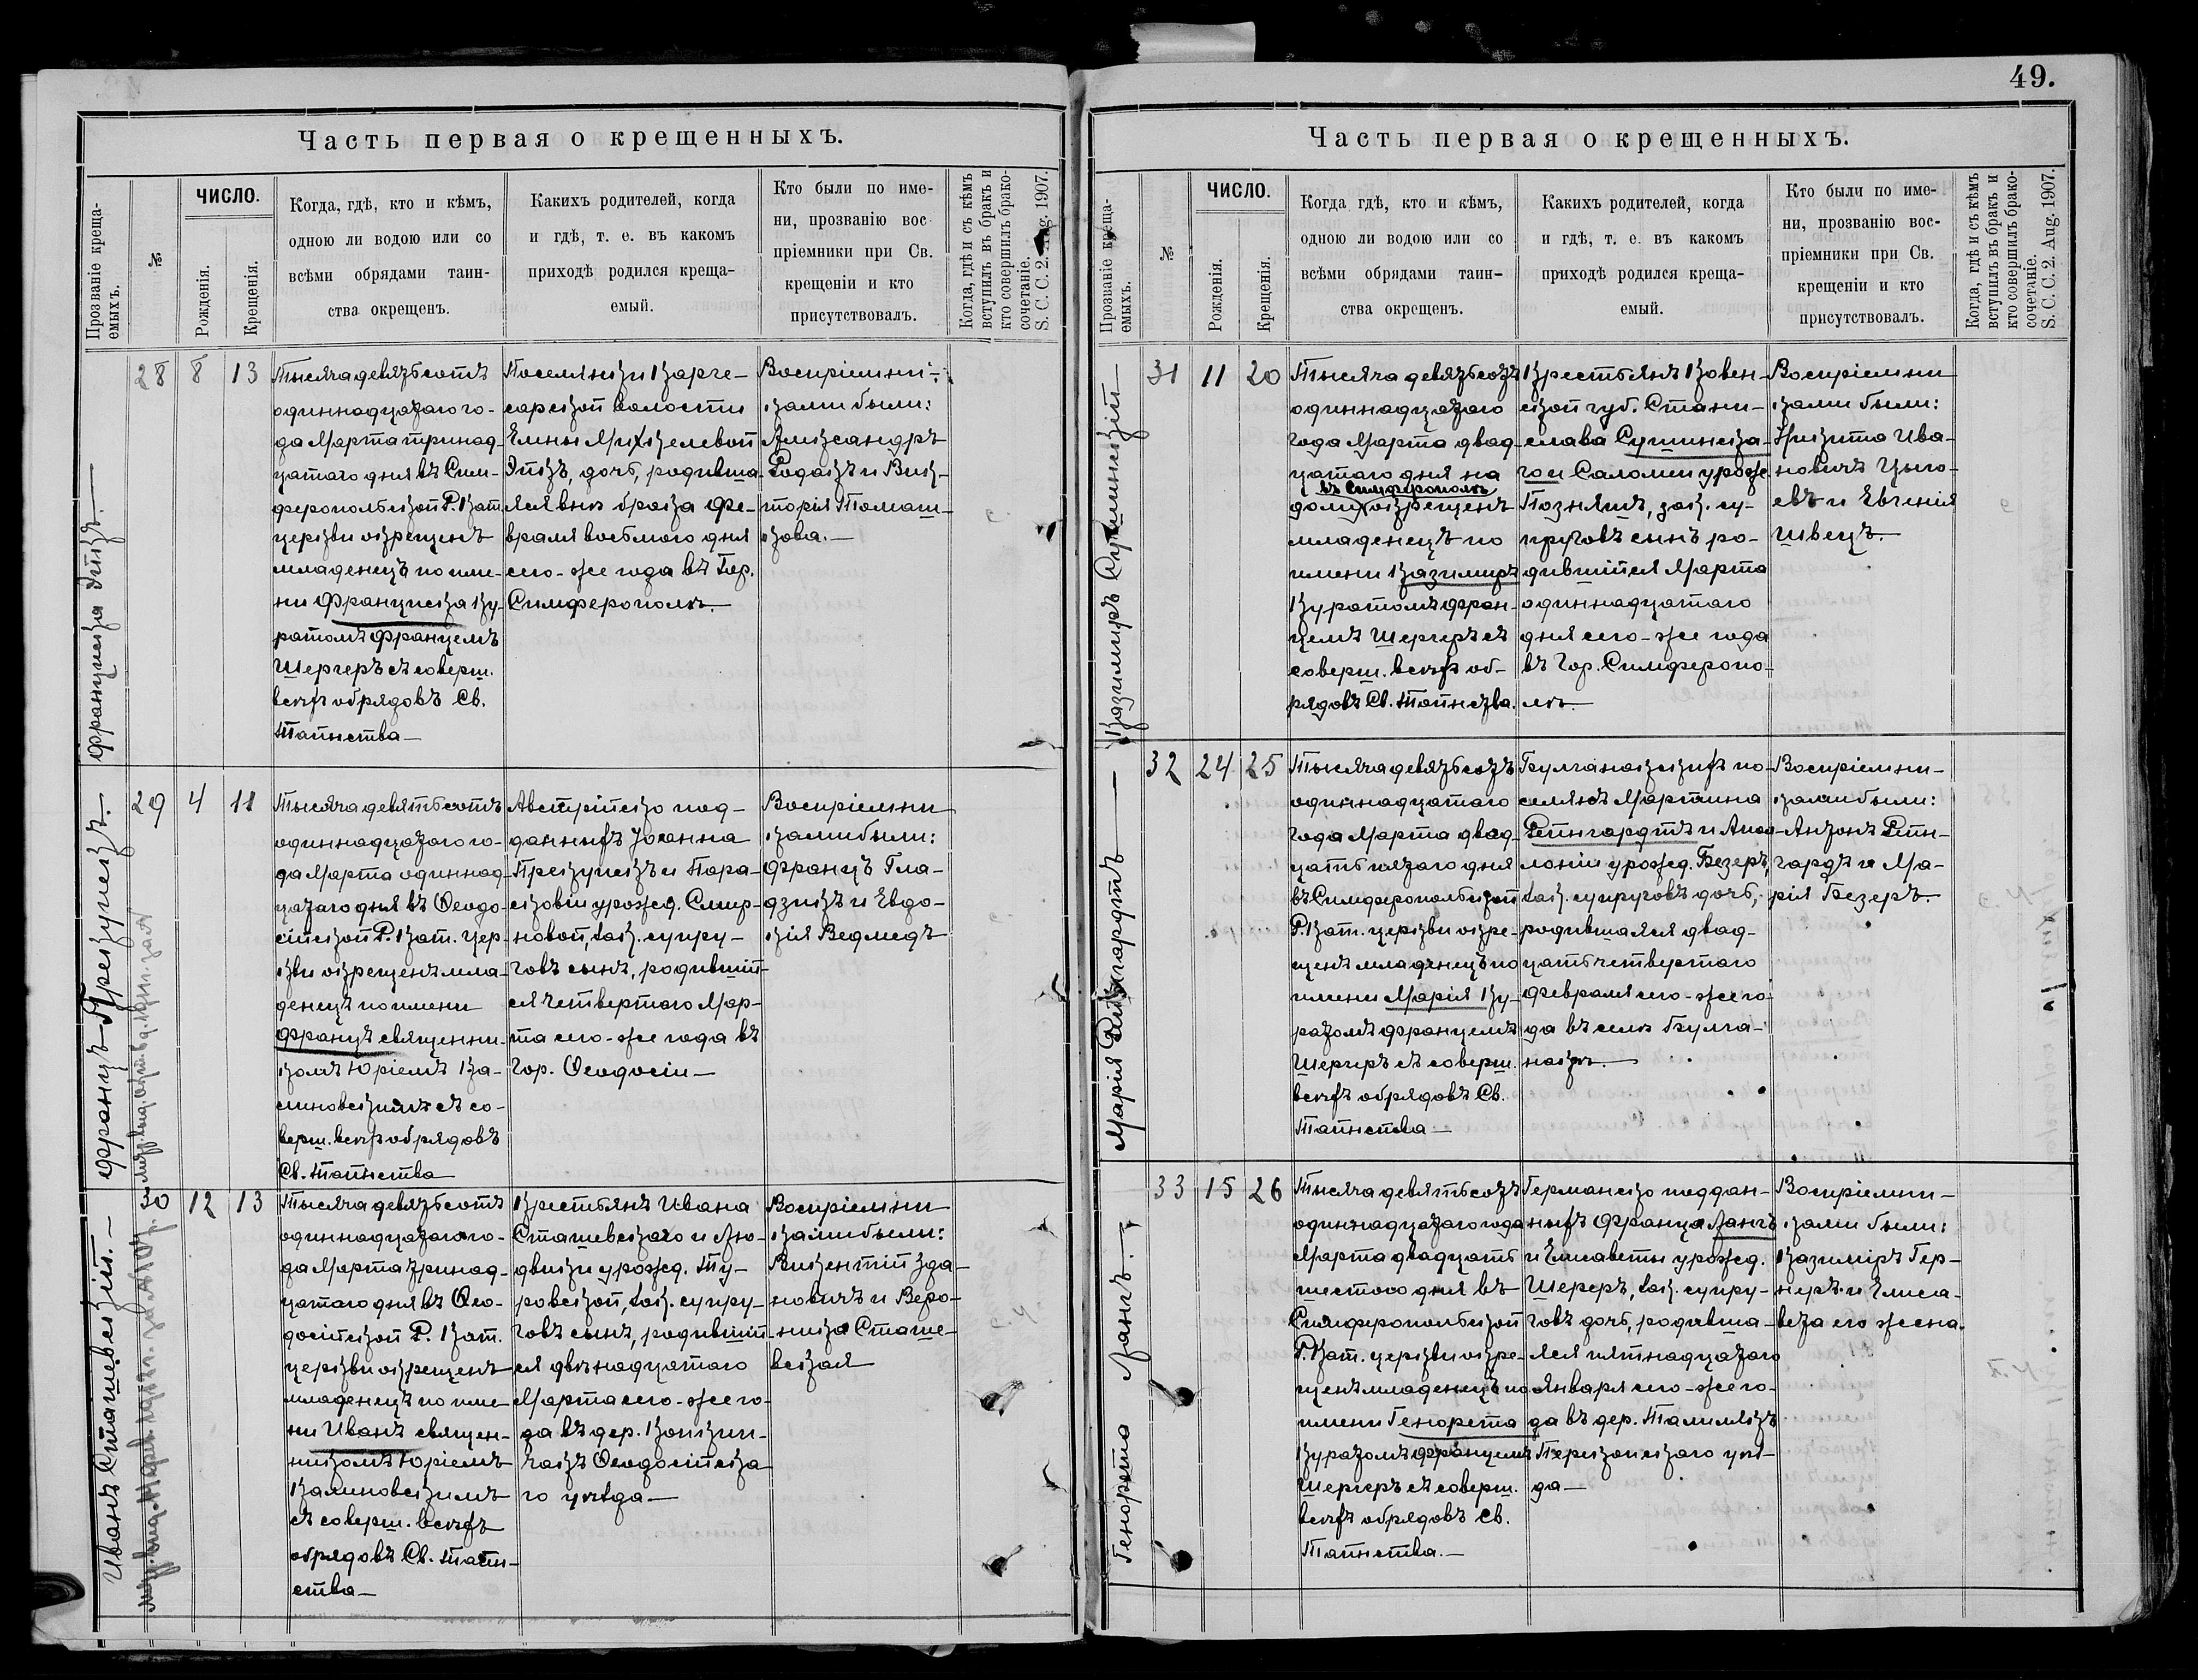 49.
Часть первая о крещенныхъ.
Прозваніе креща-
емыхъ.
№
ЧИСЛО.
Рожденія.
Крещенія.
Когда, гдѣ, кто и кѣмъ,
одною ли водою или со
всѣми обрядами таин-
ства окрещенъ.
Какихъ родителей, когда
и гдѣ, т. е. въ какомъ
приходѣ родился креща-
емый.
Кто были по име-
ни, прозванію вос
пріемники при Св.
крещеніи и кто
присутствовалъ.
Когда, гдѣ и съ кѣмъ
вступилъ въ бракъ и
кто совершилъ брако-
сочетаніе.
S. C. C. 2. Aug. 1907.
Франциска Эткъ.
28
8
13
Тысяча девятьсотъ
одиннадцатаго го-
да Марта тринад-
цатаго дня въ Сим-
феропольской Р. Кат.
церкви окрещенъ
младенецъ по име-
ни Франциска Ку-
ратомъ Францемъ
Шергеръ съ соверш.
всѣхъ обрядовъ Св.
Таинства
Поселянки Карге-
сарской волости
Елены Михелевой
Эткъ, дочь, родивша-
яся внѣ брака Фе-
враля восьмого дня
сего-же года въ Гор.
Симферополѣ.
Воспріемни-
ками были:
Александръ
Родакъ и Вик-
торія Томаш-
кова.
Францъ Прекупекъ.
29
4
11
Тысяча девятьсотъ
одиннадцатаго го-
да Марта одиннад-
цатаго дня въ Ѳеодо-
сійской Р. Кат. цер-
кви окрещенъ мла-
денецъ по имени
Францъ священни-
комъ Юріемъ Ка-
линовскимъ съ со-
верш. всѣхъ обрядовъ
Св. Таинства
Австрійско под-
данныхъ Іоанна
Прекупекъ и Пара-
сковіи урожд. Смир-
новой, зак. супру-
говъ сынъ, родившій-
ся четвертаго Мар-
та сего-же года въ
Гор. Ѳеодосіи
Воспріемни
ками были:
Францъ Гла-
дзикъ и Евдо-
кія Ведмедъ
Иванъ Сташевскій.
30
12
13
Тысяча девятьсотъ
одиннадцатаго го-
да Марта тринад-
цатаго дня въ Ѳео-
досійской Р. Кат.
церкви окрещенъ
младенецъ по име
ни Иванъ священ-
никомъ Юріемъ
Калиновскимъ
съ соверш. всѣхъ
обрядовъ Св. Таин-
ства
Крестьянъ Ивана
Сташевскаго и Лю-
двики урожд. Ту-
ровской, зак. супру-
говъ сынъ, родившій
ся двѣнадцатаго
Марта сего-же го-
да въ дер.
Ѳеодосійска
го уѣзда
Воспріемни
ками были:
Викентій Зда-
новичъ и Веро-
ника Сташе-
вская
Часть первая о крещенныхъ.
Прозваніе креща-
емыхъ.
№
ЧИСЛО.
Рожденія.
Крещенія.
Когда гдѣ, кто и кѣмъ,
одною ли водою или со
всѣми обрядами таин-
ства окрещенъ.
Какихъ родителей, когда
и гдѣ, т. е. въ какомъ
приходѣ родился креща-
емый.
Кто были по име-
ни, прозванію вос-
пріемники при Св.
крещеніи и кто
присутствовалъ.
Когда, гдѣ и съ кѣмъ
вступилъ въ бракъ и
кто совершилъ брако-
сочетаніе.
S. C. C. 2. Aug. 1907.
Казимиръ Сушинскій
31
11
20
Тысяча девятьсотъ
одиннадцатаго
года Марта двад-
цатаго дня на
въ Симферополѣ
дому окрещенъ
младенецъ по
имени Казимиръ
Куратомъ Фран-
цемъ Шергеръ съ
соверш. всѣхъ об-
рядовъ Св. Таинства.
Крестьянъ Ковен-
ской губ. Стани-
слава Сушинска-
го и Саломеи урожд.
Познякъ, зак. су-
пруговъ сынъ ро-
дившійся Марта
одиннадцатаго
дня сего-же года
въ Гор. Симферопо-
лѣ.
Воспріемни
ками были:
Никита Ива-
новичъ Цыго-
евъ и Евгенія
Швецъ.
Марія Рейнгардтъ
32
24
25
Тысяча девятьсотъ
одиннадцатаго
года Марта двад-
цать пятаго дня
въ Симферопольской
Р. Кат. церкви окре-
щенъ младенецъ по
имени Марія Ку-
ратомъ Францемъ
Шергеръ съ соверш.
всѣхъ обрядовъ Св.
Таинства
Булганакскихъ по-
селянъ Мартина
Рейнгардтъ и Апол-
лоніи урожд. Безеръ,
зак. супруговъ дочь,
родившаяся двад-
цать четвертаго
Февраля сего-же го-
да въ селѣ Булга-
накъ.
Воспріемни-
ками были:
Антонъ Рейн-
гардъ и Ма-
рія Безеръ.
Генорета Лангъ.
33
15
26
Тысяча девятьсотъ
одиннадцатаго года
Марта двадцать
шестого дня въ
Симферопольской
Р. Кат. церкви окре-
щенъ младенецъ по
имени Генорета
Куратомъ Францемъ
Шергеръ съ соверш.
всѣхъ обрядовъ Св.
Таинства.
Германско поддан-
ныхъ Франца Лангъ
и Елисаветы урожд.
Шереръ, зак. супру-
говъ дочь, родивша-
яся пятнадцатаго
Января сего-же го-
да въ дер.
Перекопскаго уѣз-
да
Воспріемни-
ками были:
Казиміръ Гер-
неръ и Елиса-
вета его жена.